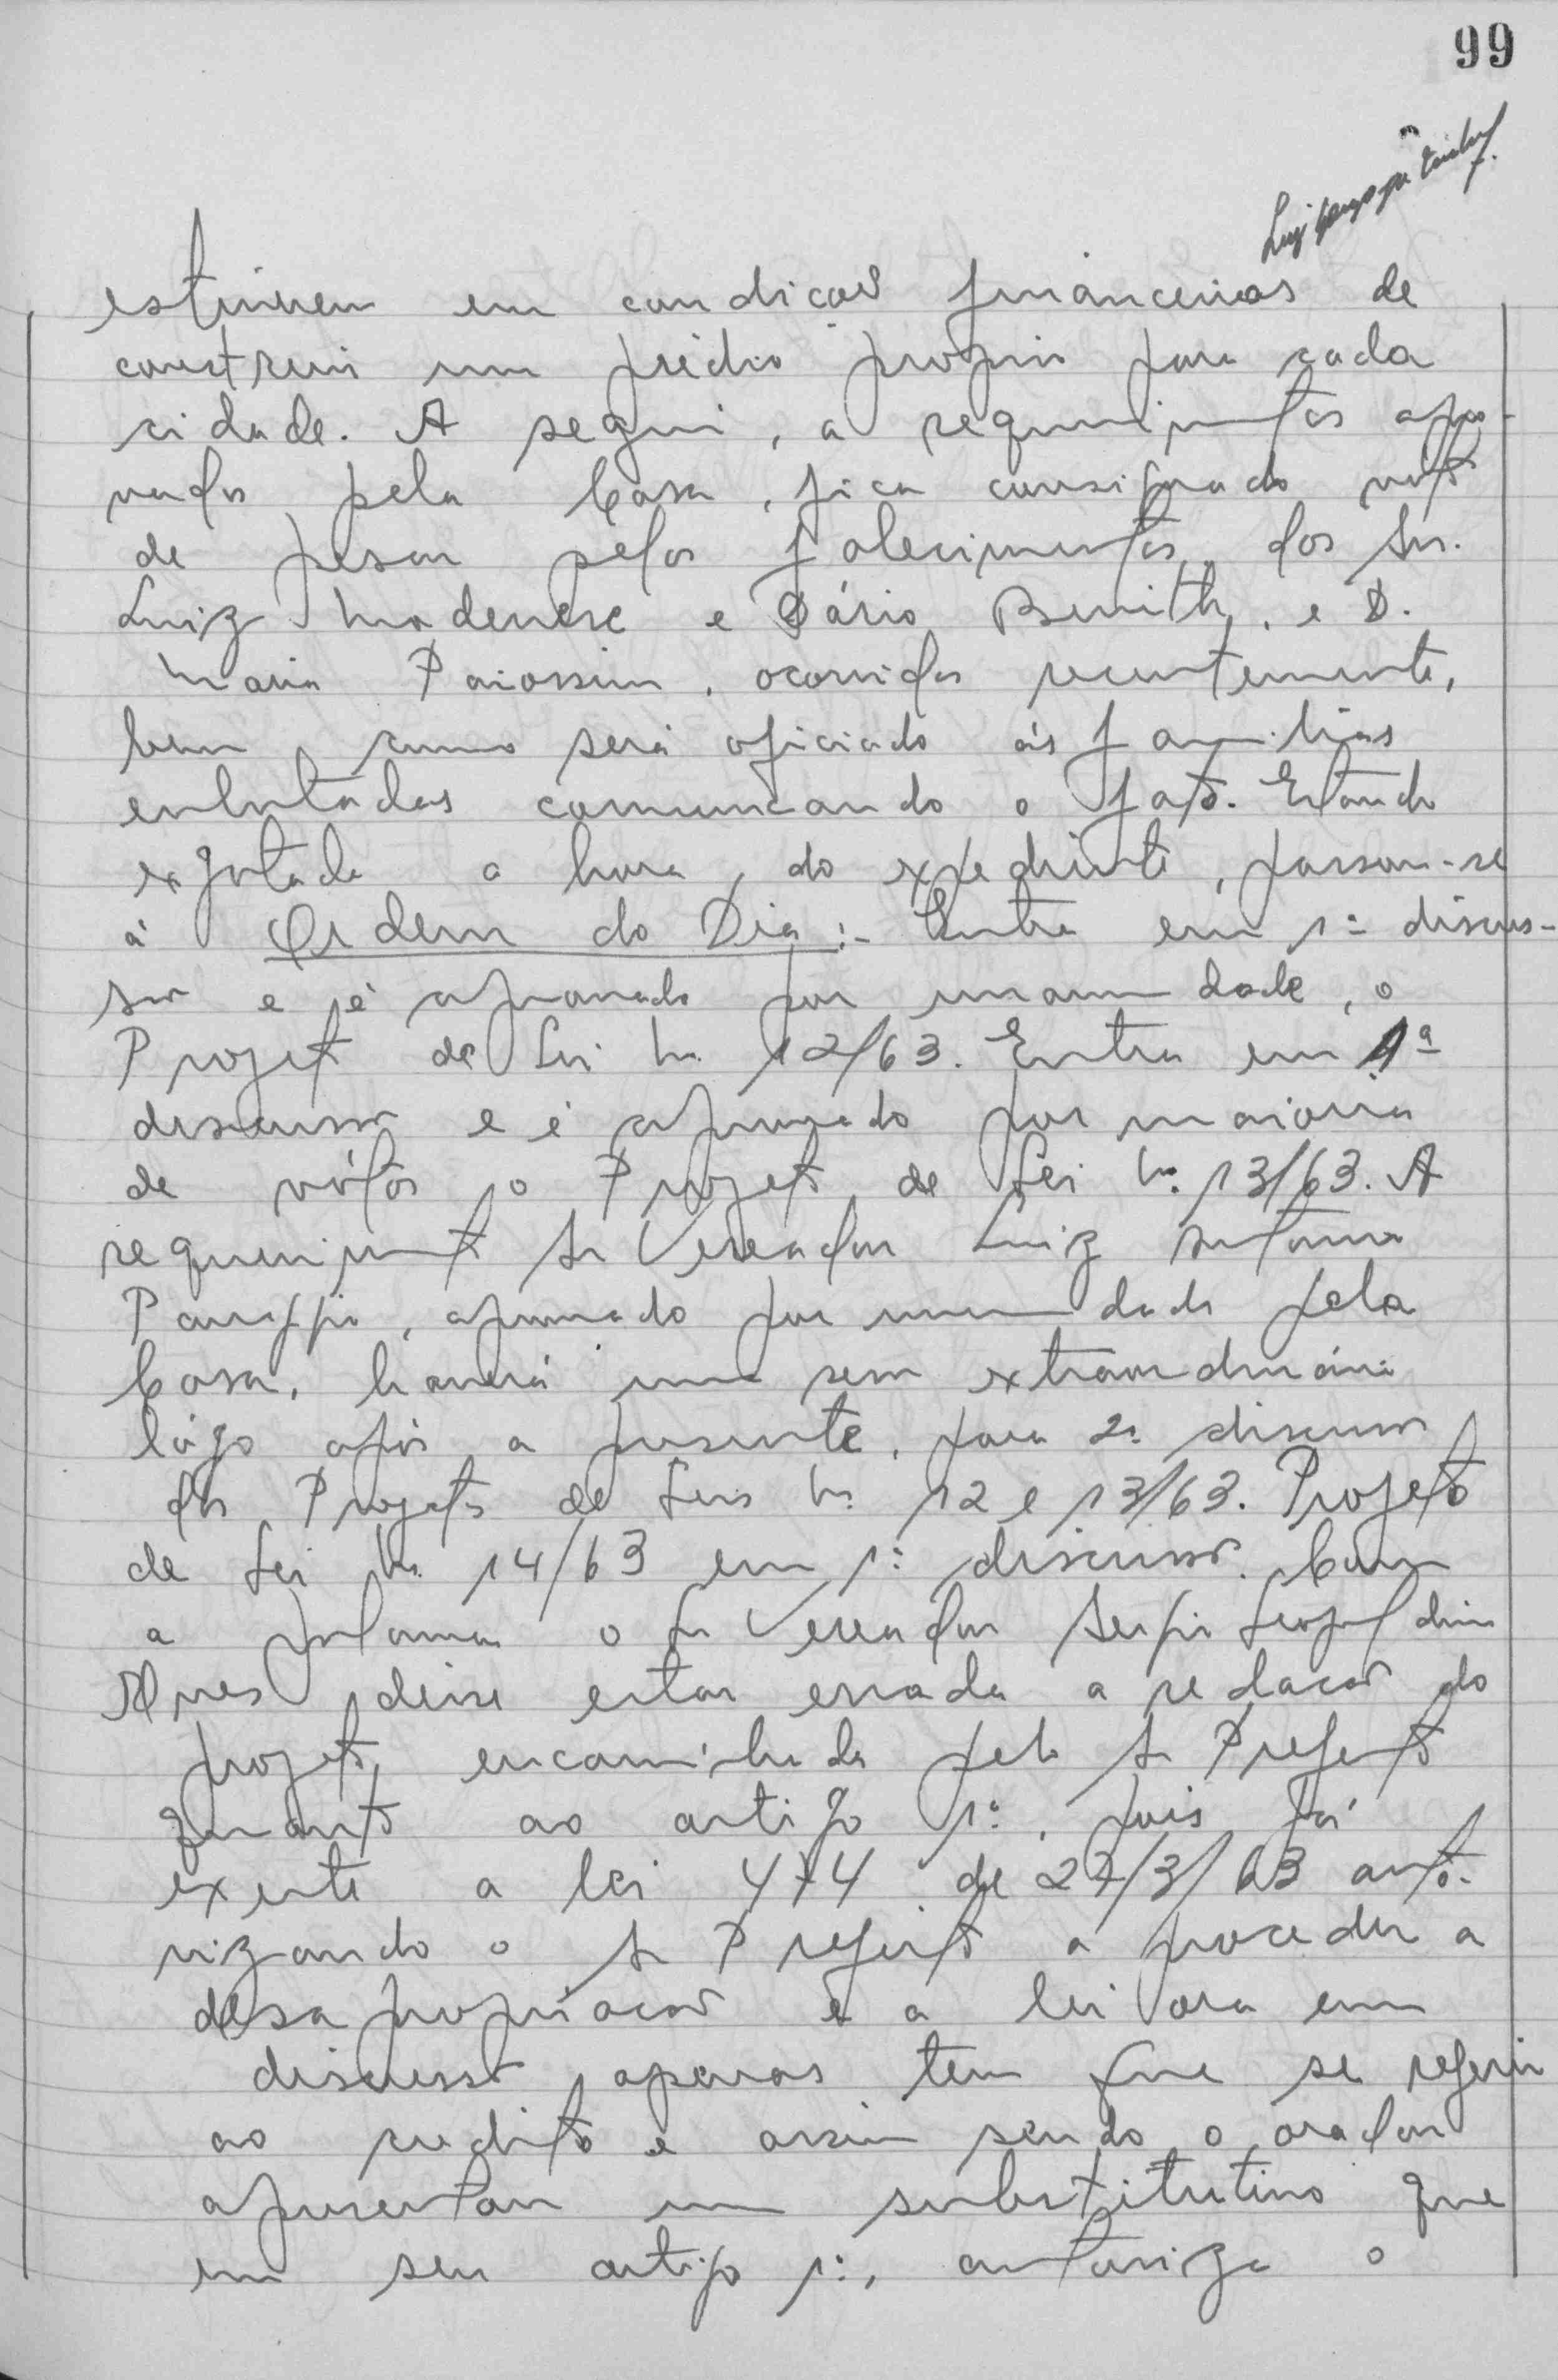 99
estiverem em condições financeiras de
construir um prédio proprio para cada
cidade. A seguir, a requerimentos apro-
vados pela Casa, fica consignado voto
de pesar pelos falecimentos dos Srs.
Luiz Modenese e Dário, e D.
Maria, ocorridos recentemente,
bem como será oficiado ás familias
enlutadas comunicando o fato. Estando
esgotada a hora do expediente, passou-se
á Ordem do Dia:- Entra em 1ª discus-
são e é aprovado por unanimidade, o
Projeto de Lei nº 12/63. Entra em 1ª
discussão e é aprovado por maioria
de vótos o Projeto de Lei nº 13/63. A
requerimento Sr Vereador Luiz
aprovado por unanimidade pela
Casa, haverá uma sessão extraordinária
lógo após a presente, para 2ª discussão
dos Projetos de Leis nº 12 e 13/63. Projeto
de Lei nº 14/63 em 1ª discussão. Com
a palavra o Sr Vereador Sergio Leopoldino
Alves disse estar errada a redação do
projeto encaminhada pelo Sr Prefeito
quanto ao artigo 1º, pois já
existe a lei 474 de 27/3/63 auto-
rizando o Sr Prefeito a proceder a
desapropriação e a lei ora em
discussão apenas tem que se referir
ao credito e assim sendo o orador
apresentou um substitutivo que
em seu artigo 1º, autoriza o